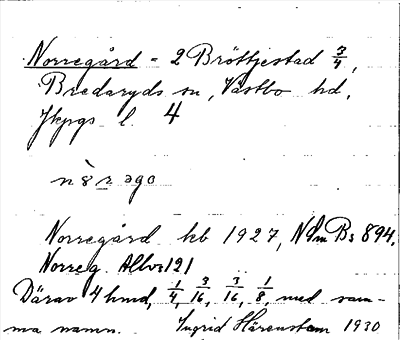 Norregård = 2 Bröttjestad 3/4,
Bredaryds sn, Västbo hd,
Jkpgs l. 4
Norregård kb 1927, NSmBs 894.
Norreg. Allbo 121
Därav 4 hmd, 1/4, 3/16, 3/16, 1/8, med sam-
ma namn. Ingrid Härenstam 1930